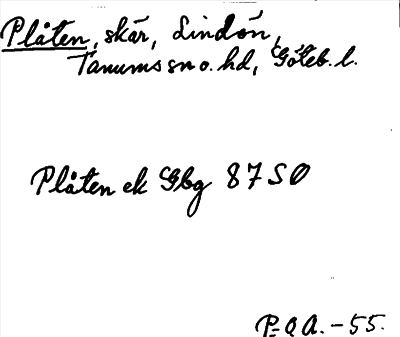 Plåten, skär, Lindön,
Tanums sn o. hd, Göteb. l.
Plåten ek Gbg 87 SO
P-Q A. -55.